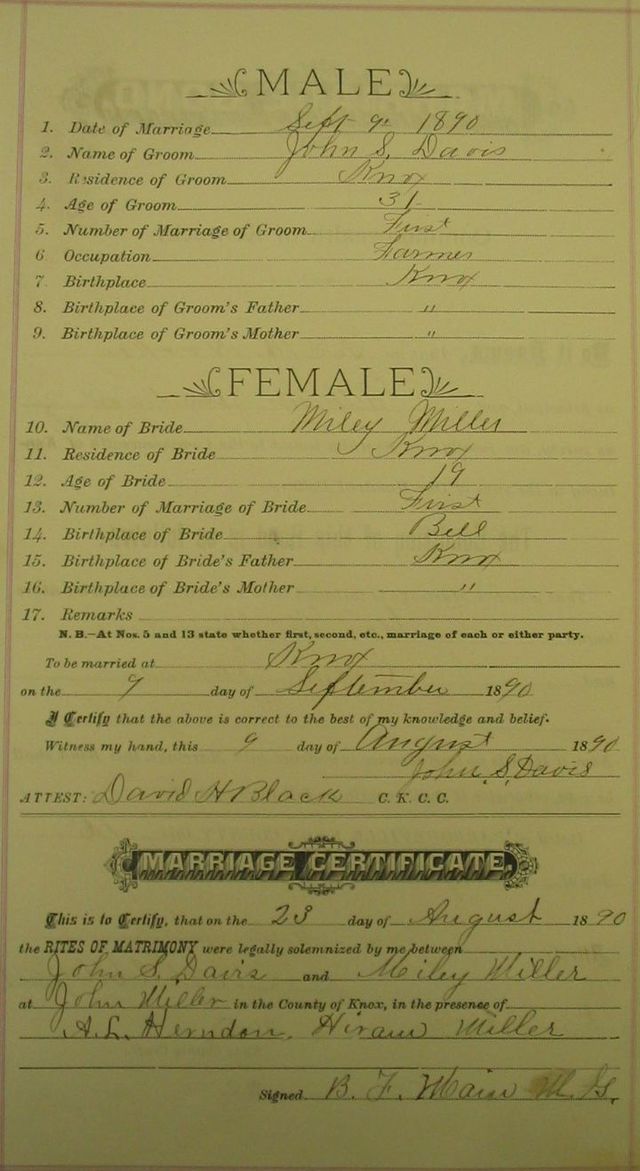 MALE
1. Date of Marriage Sept 9th 1890
2. Name of Groom John S. Davis
3. Residence of Groom Knox
4. Age of Groom 31
5. Number of Marriage of Groom First
6 Occupation Farmer
7 Birthplace Knox
8. Birthplace of Groom's Father "
9. Birthplace of Groom's Mother "
FEMALE
10. Name of Bride Miley Miller
11. Residence of Bride Knox
12. Age of Bride 19
13. Number of Marriage of Bride First
14. Birthplace of Bride Bell
15. Birthplace of Bride's Father Knox
16. Birthplace of Bride's Mother "
17. Remarks
N. B.—At Nos. 5 and 13 state whether first, second, etc., marriage of each or either party.
To be married at Knox
on the 9 day of September 1890
I Certify that the above is correct to the best of my knowledge and belief.
Witness my hand, this 9 day of August 1890
John S. Davis
ATTEST: David H Black C. K. C. C.
MARRIAGE CERTIFICATE.
This is to Certify, that on the 23 day of August 1890
the RITES OF MATRIMONY were legally solemnized by me between
John S. Davis and Miley Miller
at John Miller in the County of Knox, in the presence of
A. L. Herndon, Hiram Miller
Signed B. F. Main M. G.